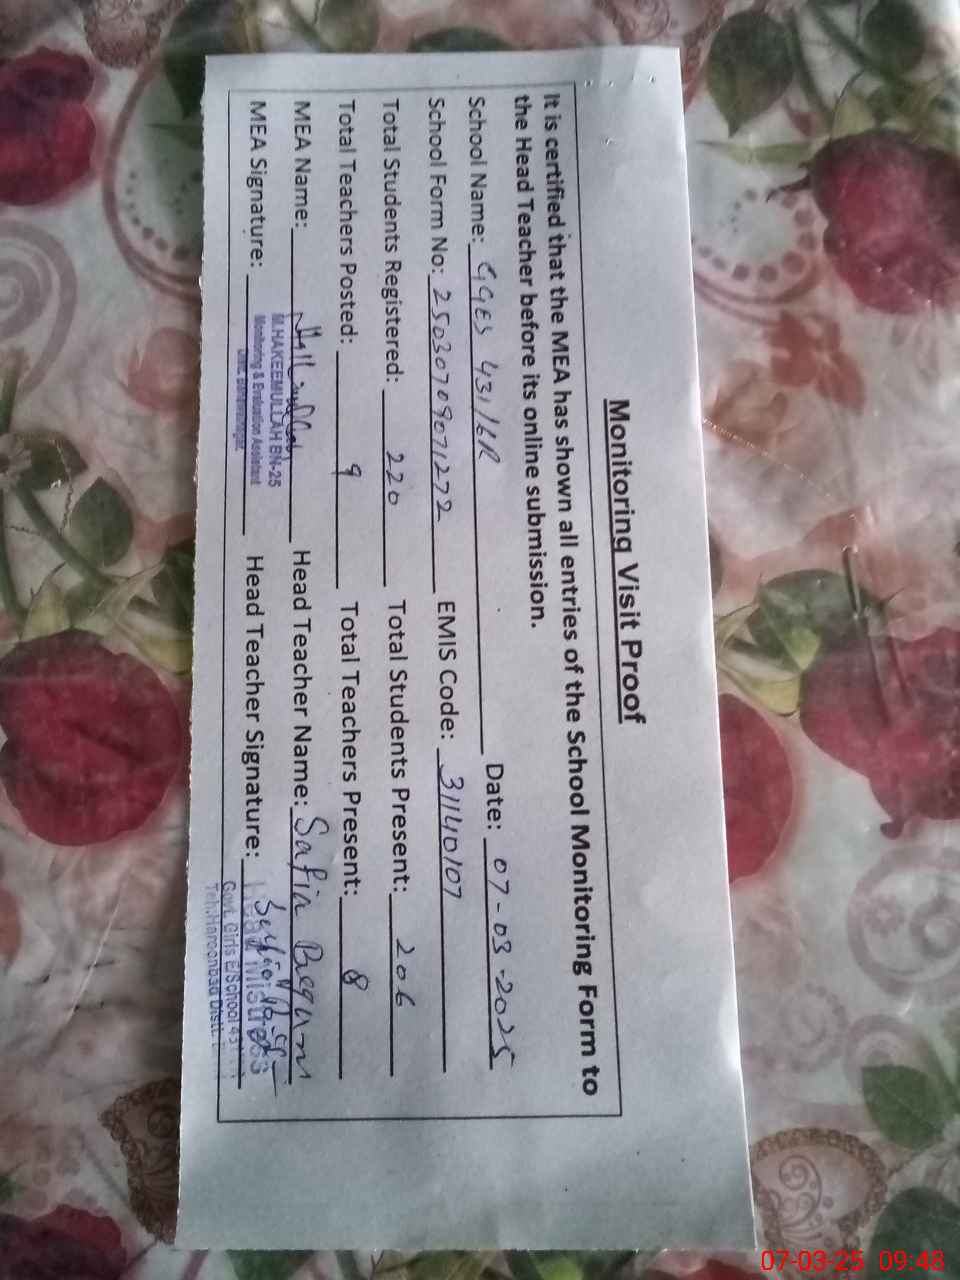 Monitoring Visit Proof
It is certified that the MEA has shown all entries of the School Monitoring Form to
the Head Teacher before its online submission.
School Name: GGES 431/6R Date: 07-03-2025
School Form No: 25030709071272 EMIS Code: 31140107
Total Students Registered: 220 Total Students Present: 206
Total Teachers Posted: 9 Total Teachers Present: 8
MEA Name: Head Teacher Name: Safia Begum
M.HAKEEMULLAH BN-25
MEA Signature: Head Teacher Signature:
Monitoring & Evaluation Assistant
Head Mistress
Govt. Girls E/School 431
Teh:Haroonbad Distt.
07-03-25 09:48